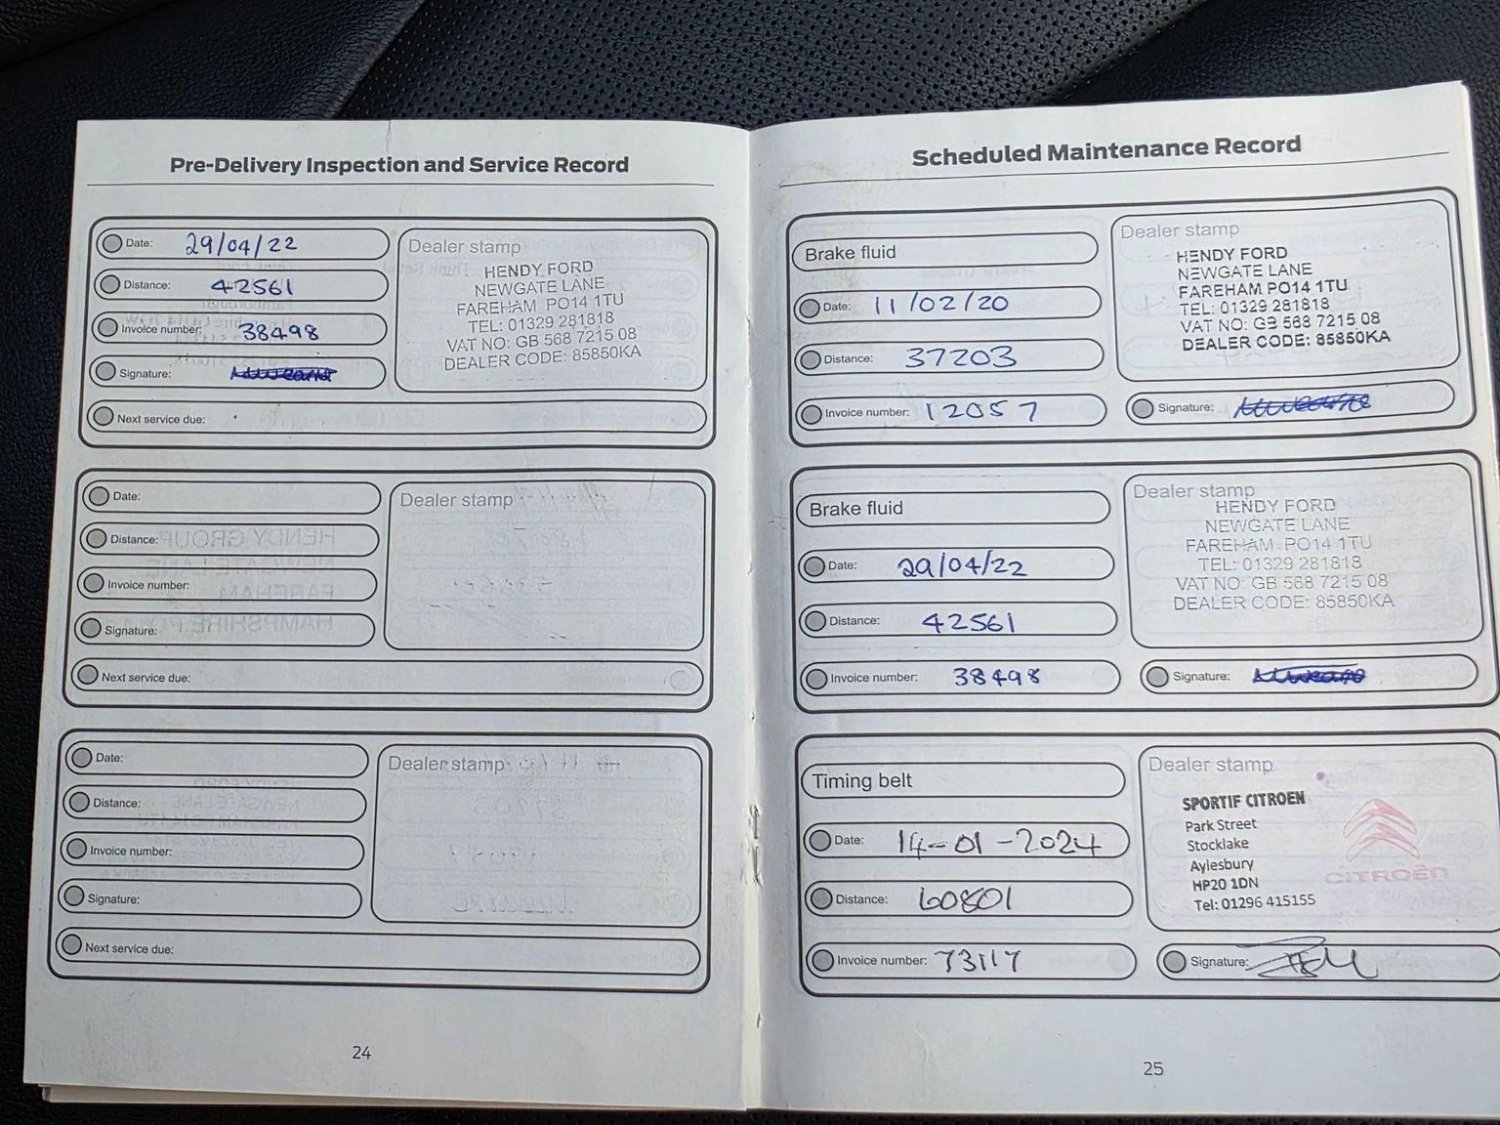 Pre-Delivery Inspection and Service Record
Date: 29/04/22
Distance: 42561
Invoice number: 38498
Signature:
Next service due:
Dealer stamp
HENDY FORD
NEWGATE LANE
FAREHAM PO14 1TU
TEL: 01329 281818
VAT NO: GB 568 7215 08
DEALER CODE: 85850KA
Date:
Distance:
Invoice number:
Signature:
Next service due:
Dealer stamp
Date:
Distance:
Invoice number:
Signature:
Next service due:
Dealer stamp
24
Scheduled Maintenance Record
Brake fluid
Date: 11/02/20
Distance: 37203
Invoice number: 12057
Dealer stamp
HENDY FORD
NEWGATE LANE
FAREHAM PO14 1TU
TEL: 01329 281818
VAT NO: GB 568 7215 08
DEALER CODE: 85850KA
Signature:
Brake fluid
Date: 29/04/22
Distance: 42561
Invoice number: 38498
Dealer stamp
HENDY FORD
NEWGATE LANE
FAREHAM PO14 1TU
TEL: 01329 281818
VAT NO: GB 568 7215 08
DEALER CODE: 85850KA
Signature:
Timing belt
Date: 14-01-2024
Distance: 60801
Invoice number: 73117
Dealer stamp
SPORTIF CITROEN
Park Street
Stocklake
Aylesbury
HP20 1DN
Tel: 01296 415155
CITROËN
Signature:
25